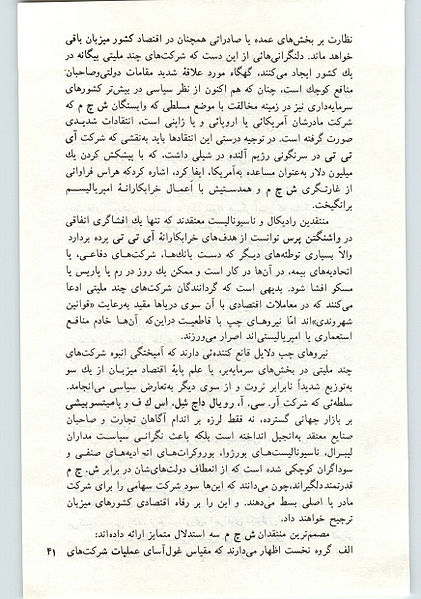 نظارت بر بخش‌های عمده یا صادراتی همچنان در اقتصاد کشور میزبان باقی
خواهد ماند. دلنگرانی‌هائی از این دست که شرکت‌های چند ملیتی بیگانه در
یك کشور ایجاد می‌کنند، گهگاه مورد علاقهٔ شدید مقامات دولتی‌وصاحبان
منافع کوچك است، چنان که هم اکنون از نظر سیاسی در بیش‌تر کشورهای
سرمایه‌داری نیز در زمینه مخالفت با موضع مسلطی که وابستگان ش چ م که
شرکت مادرشان آمریکائی یا اروپائی و یا ژاپنی است، انتقادات شدیدی
صورت گرفته است. در توجیه درستی این انتقادها باید به‌نقشی که شرکت آی
تی تی در سرنگونی رژیم آلنده در شیلی داشت، که با پیشکش کردن یك
میلیون دلار به‌عنوان مساعده به‌آمریکا، ایفا کرد، اشاره کردکه هراس فراوانی
از غارتگری ش چ م و همدستیش با اَعمال خرابکارانهٔ امپریالیسم
برانگیخت.
منتقدین رادیکال و ناسیونالیست معتقدند که تنها یك افشاگری اتفاقی
در واشنگتن پرس توانست از هدف‌های خرابکارانهٔ آی تی تی پرده بردارد
والاّ بسیاری توطئه‌های دیگر که دست بانك‌هـا، شرکت‌های دفاعی، یا
اتحادیه‌های بیمه، در آن‌ها در کار است و ممکن یك روز در رم یا پاریس یا
مسکو افشا شود. بدیهی است که گردانندگان شرکت‌های چند ملیتی ادعا
می‌کنند که در معاملات اقتصادی با آن سوی دریاها مقید به‌رعایت «قوانین
شهروندی»اند امّا نیروهـای چپ با قاطعیت دراین‌که آن‌هـا خادم منافـع
استعماری یا امپریالیستی‌اند اصرار می‌ورزند.
نیروهای چپ دلایل قانع کننده‌ئی دارند که آمیختگی انبوه شرکت‌های
چند ملیتی در بخش‌های سرمایه‌بر، یا علم پایهٔ اقتصاد میزبـان از یك سو
به‌توزیع شدیداً نابرابر ثروت و از سوی دیگر به‌تعارض سیاسی می‌انجامد.
سلطه‌ئی که شرکت آر. سی. آ، رویال داچ شِل، اس ك ف و یامیتسوبیشی
بر بازار جهانی گسترده، نه فقط لرزه بر اندام آگاهان تجارت و صاحبان
صنایع معتقد به‌انجیل انداخته است بلکه باعث نگرانـی سیاسـت مداران
لیبـرال، ناسیونالیست‌هـای بورژوا، بوروکرات‌هـای اتحادیه‌هـای صنفـی و
سوداگران کوچکی شده است که از انعطاف دولت‌های‌شان در برابر ش. چ م
قدرتمند دلگیراند،چون می‌دانند که این‌ها سود شرکت سهامی را برای شرکت
مادر یا اصلی بسط می‌دهند. و این را بر رفاه اقتصادی کشورهای میزبان
ترجیح خواهند داد.
مصمم‌ترین منتقدان ش چ م سه استدلال متمایز ارائه داده‌اند:
الف گروه نخست اظهار می‌دارند که مقیاس غول‌آسای عملیات شرکت‌های ۴۱